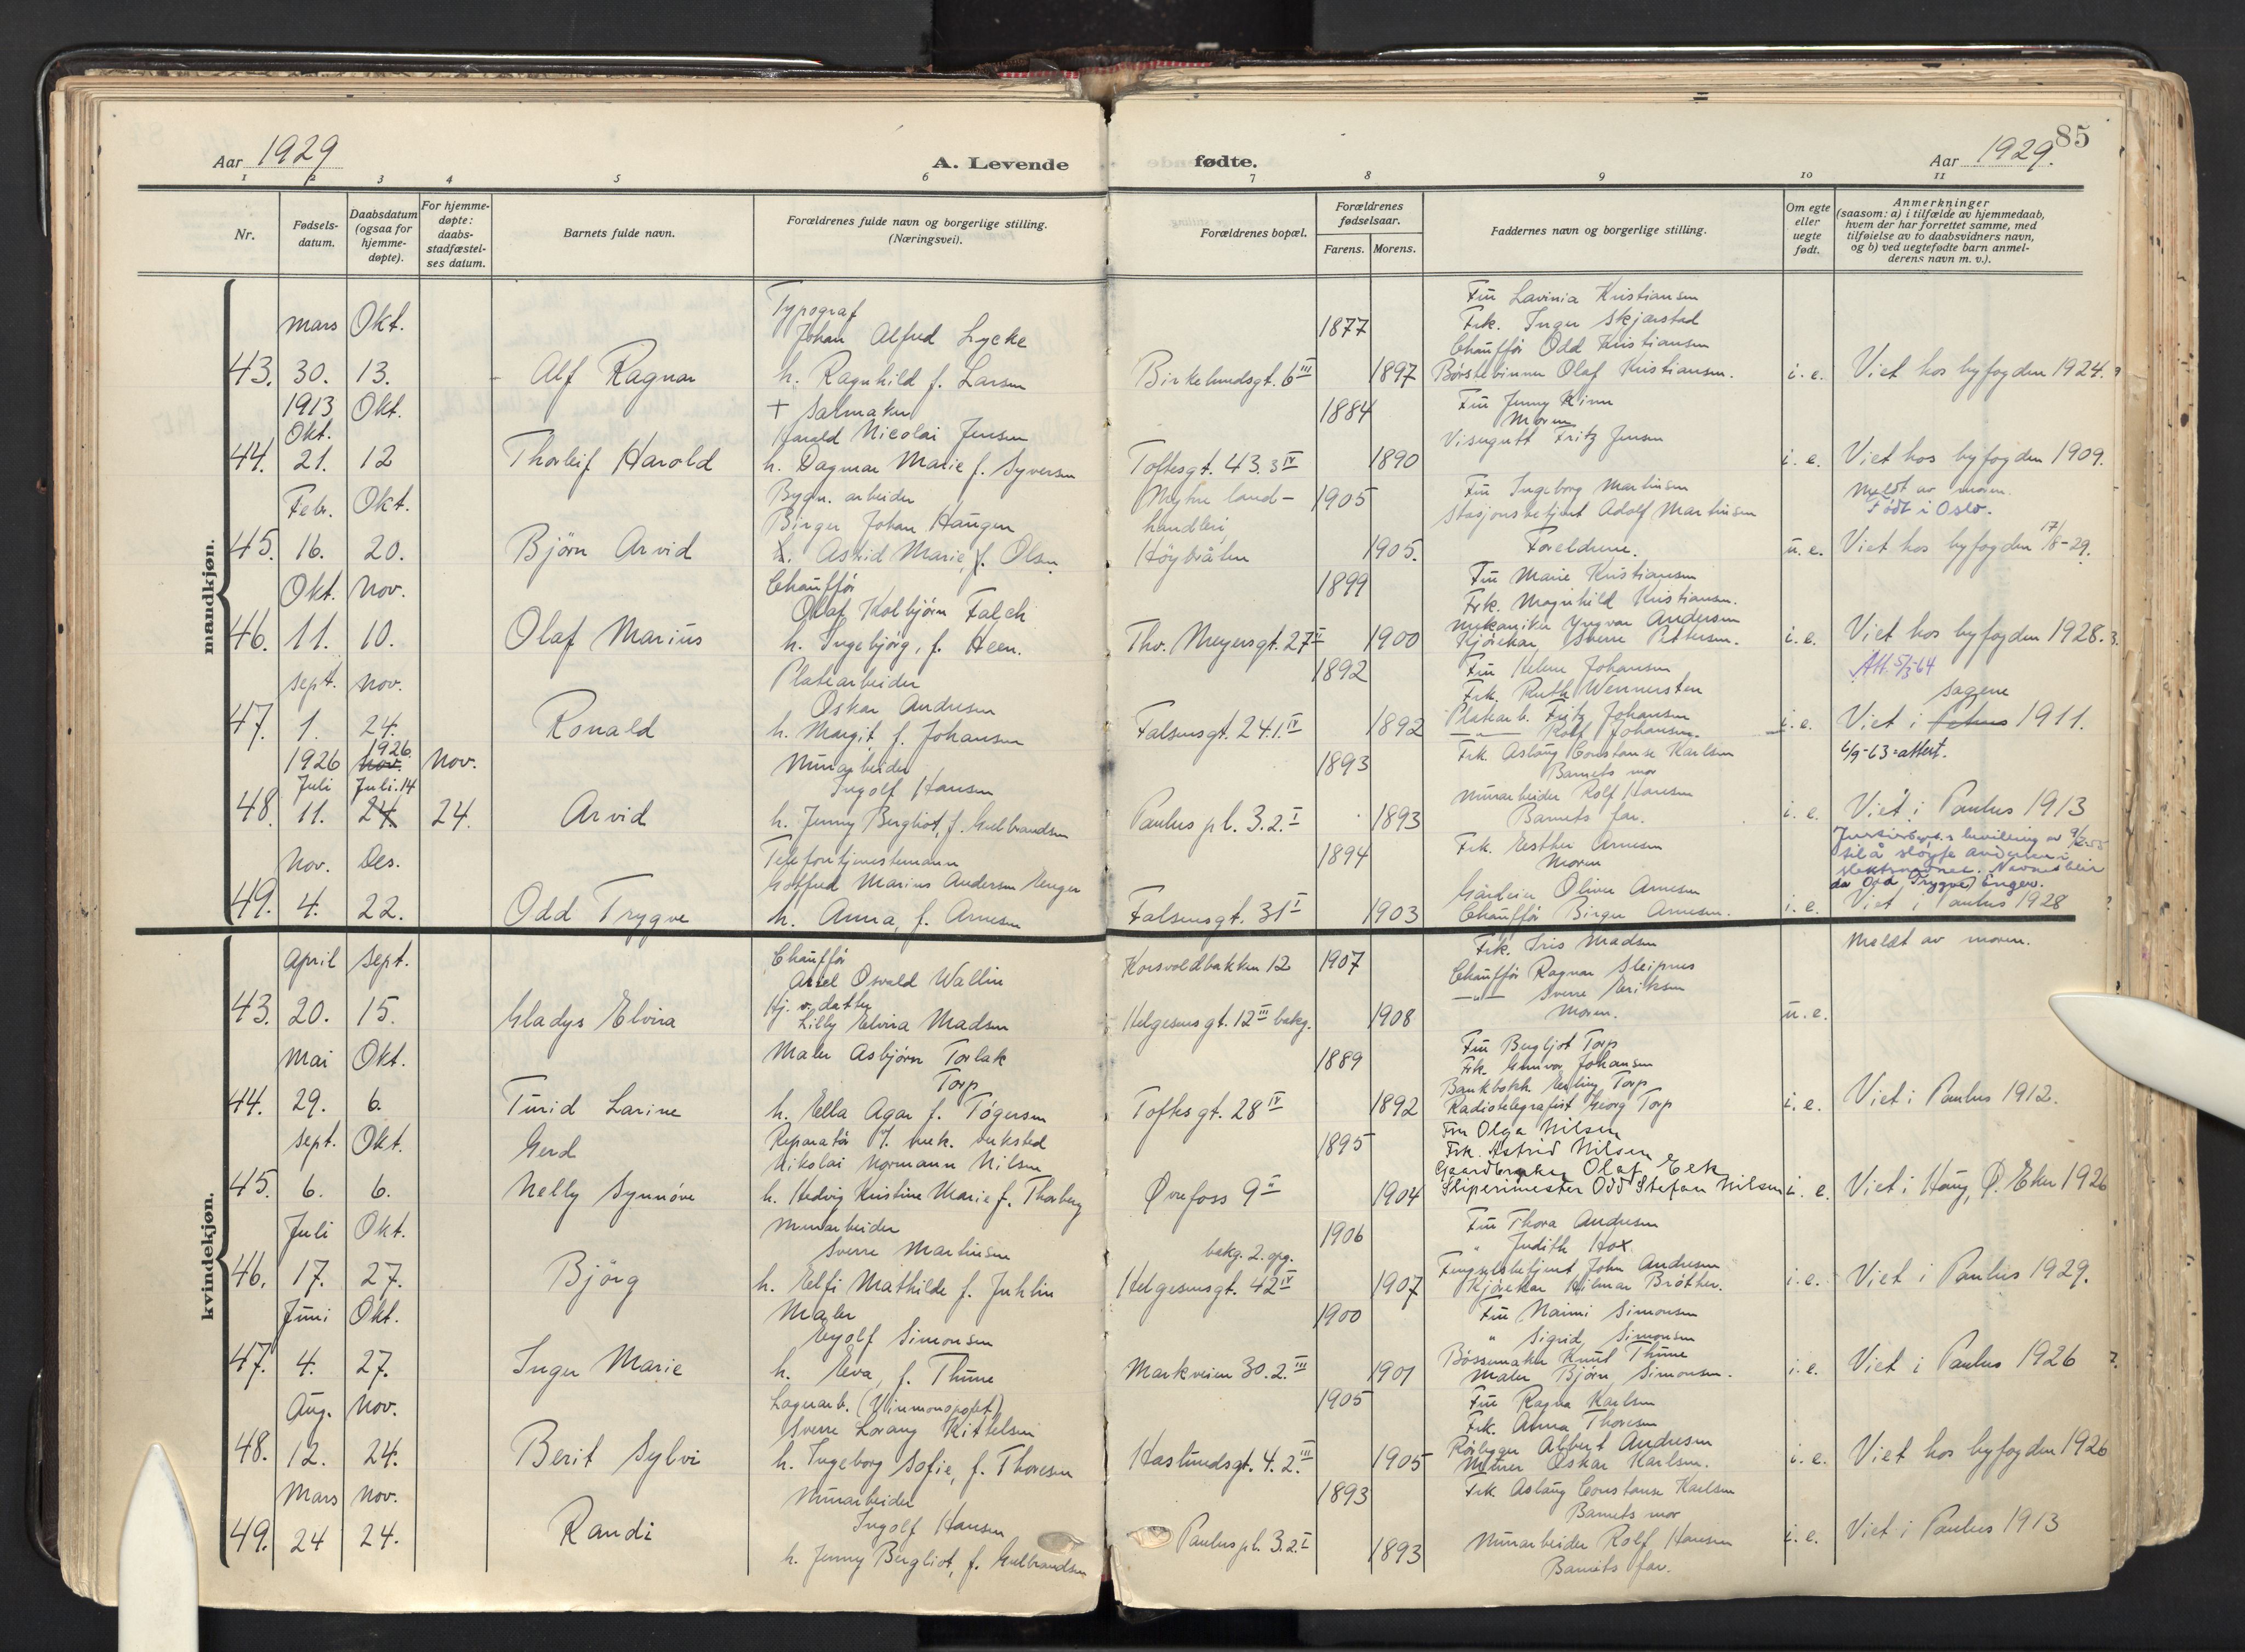 85
Aar 1929
A. Levende
fødte.
Aar 1929.
1 2 3 4 5 6 7 8 9 10 11
Nr.
Fødsels-
datum.
Daabsdatum
(ogsaa for
hjemme-
døpte).
For hjemme-
døpte:
daabs-
stadfæstel-
ses datum.
Barnets fulde navn.
Forældrenes fulde navn og borgerlige stilling.
(Næringsvei).
Forældrenes bopæl.
Forældrenes
fødselsaar.
Farens. Morens.
Faddernes navn og borgerlige stilling.
Om egte
eller
uegte
født.
Anmerkninger
(saasom: a) i tilfælde av hjemmedaab,
hvem der har forrettet samme, med
tilføielse av to daabsvidners navn,
og b) ved uegtefødte barn anmel-
derens navn m. v.).
mandkjøn.
43.
mars
30.
Okt.
13.
Alf Ragnar
Typograf
Johan Alfred Lycke
h. Ragnhild f. Larsen
Birkelundsgt. 6 III
1877
1897
Fru Lavinia Kristiansen
Frk. Inger Skjærstad
Chauffør Odd Kristiansen
Børstebinner Olaf Kristiansen.
i. e.
Viet hos byfogden 1924.
44.
1913
Okt.
21.
Okt.
12
Thorleif Harold
+ Salmaker
Harald Nicolai Jensen
h. Dagmar Marie f. Syversen
Toftesgt. 43.3 IV
1884
1890
Fru Jenny Kinn
Moren
Visergutt Fritz Jensen
i. e.
Viet hos byfogden 1909.
45.
Febr.
16.
Okt.
20.
Bjørn Arvid
Bygn. arbeider
Birger Johan Haugen
h. Astrid Marie, f. Olsen
Myhre land-
handleri,
Høybråten
1905
1905.
Fru Ingeborg Martinsen
Stasjonsbetjent Adolf Martinsen
Foreldrene.
u. e.
Meldt av moren.
Født i Oslo.
Viet hos byfogden 17/8-29.
46.
Okt.
11.
Nov.
10.
Olaf Marius
Chauffør
Olaf Kolbjørn Falch
h. Ingebjørg, f. Heen.
Thv. Meyersgt. 27 II
1899
1900
Fru Marie Kristiansen
Frk. Magnhild Kristiansen.
Mekaniker Yngvar Andersen
Kjørekar Sverre Pettersen.
i. e.
Viet hos byfogden 1928.
47.
Sept.
1.
Nov.
24.
Ronald
Platearbeider
Oskar Andresen
h. Margit f. Johansen
Falsensgt. 24 1. IV
1892
1892
Fru Helene Johansen
Frk. Ruth Wennersten
Platearb. Fritz Johansen
—"— Rolf Johansen.
i. e.
Att. 5/3-64
Sagene
Viet i Petrus 1911.
48.
1926
Juli
11.
1926
Nov.
Juli. 14
24.
Nov.
24.
Arvid
Murarbeider
Ingolf Hansen
h. Jenny Bergliot, f. Gulbrandsen
Paulus pl. 3.2. I
1893
1893
Frk. Aslaug Constanse Karlsen
Barnets mor
Murarbeider Rolf Hansen
Barnets far.
i. e.
6/9-63=attest.
Viet i Paulus 1913
49.
Nov.
4.
Des.
22.
Odd Trygve
Telefontjenestemann
Gotfred Marius Andersen Enger
h. Anna, f. Arnesen
Falsensgt. 31 I
1894
1903
Frk. Esther Arnesen
Moren
Gårdeier Oliver Arnesen
Chauffør Birger Arnesen.
i. e.
til å sløyfe Andersen i
slektsnavnet. Navnet blir
da Odd Trygve Enger.
Viet i Paulus 1928
kvindekjøn.
43.
April
20.
Sept.
15.
Gladys Elvira
Chauffør
Axel Osvald Wallin
Hj. v. datter
Lilly Elvira Madsen
Korsvoldbakken 12
Helgesensgt. 12 III bakg.
1907
1908
Frk. Iris Madsen
Chauffør Ragnar Sleipnes
—"— Sverre Eriksen
Moren.
u. e.
Meldt av moren.
44.
Mai
29.
Okt.
6.
Turid Larine
Maler Asbjørn Torlak
Torp
h. Ella Agar f. Tøgersen
Toftes gt. 28 IV
1889
1892
Fru Bergljot Torp
Frk. Gunvor Johansen
Bankbokh. Erling Torp
Radiotelegrafist Georg Torp
i. e.
Viet i Paulus 1912.
45.
Sept.
6.
Okt.
6.
Gerd
Nelly Synnøve
Reparatør v. mek. verksted
Nikolai Normann Nilsen
h. Hedvig Kristine Marie f. Thorberg
Øvrefoss 9 II
1895
1904
Fru Olga Nilsen
Frk. Astrid Nilsen
Gaardbruker Olaf Eek
Sliperimester Odd Stefan Nilsen
i. e.
Viet i Haug, Ø. Eker 1926
46.
Juli
17.
Okt.
27.
Bjørg
Murarbeider
Sverre Martinsen
h. Elfi Mathilde f. Juhlin
bakg. 2. opg.
Helgesensgt. 42 IV
1906
1907
Fru Thora Andresen
" Judith Hox.
Fengselsbetjent John Andresen
Kjørekar Hilmar Bråthen.
i. e.
Viet i Paulus 1929.
47.
Juni
4.
Okt.
27.
Inger Marie
Maler
Eyolf Simonsen
h. Eva, f. Thune
Markveien 30.2. III
1900
1901
Fru Naimi Simonsen
" Sigrid Simonsen
Bøssemaker Knut Thune
Maler Bjørn Simonsen.
i. e.
Viet i Paulus 1926
48.
Aug.
12.
Nov.
24.
Berit Sylvi
Lagerarb. (Vinmonopolet)
Sverre Lorang Kittelsen
h. Ingeborg Sofie, f. Thoresen
Haslundsgt. 4.2. III
1905
1905
Fru Ragna Karlsen
Frk. Anna Thoresen
Rørlegger Albert Andresen
Murer Oskar Karlsen.
i. e.
Viet hos byfogden 1926
49.
Mars
24
Nov.
24.
Randi
Murarbeider
Ingolf Hansen
h. Jenny Bergliot, f. Gulbrandsen
Paulus pl. 3.2. I
1893
1893
Frk. Aslaug Constanse Karlsen
Barnets mor
Murarbeider Rolf Hansen
Barnets far.
i. e.
Viet i Paulus 1913